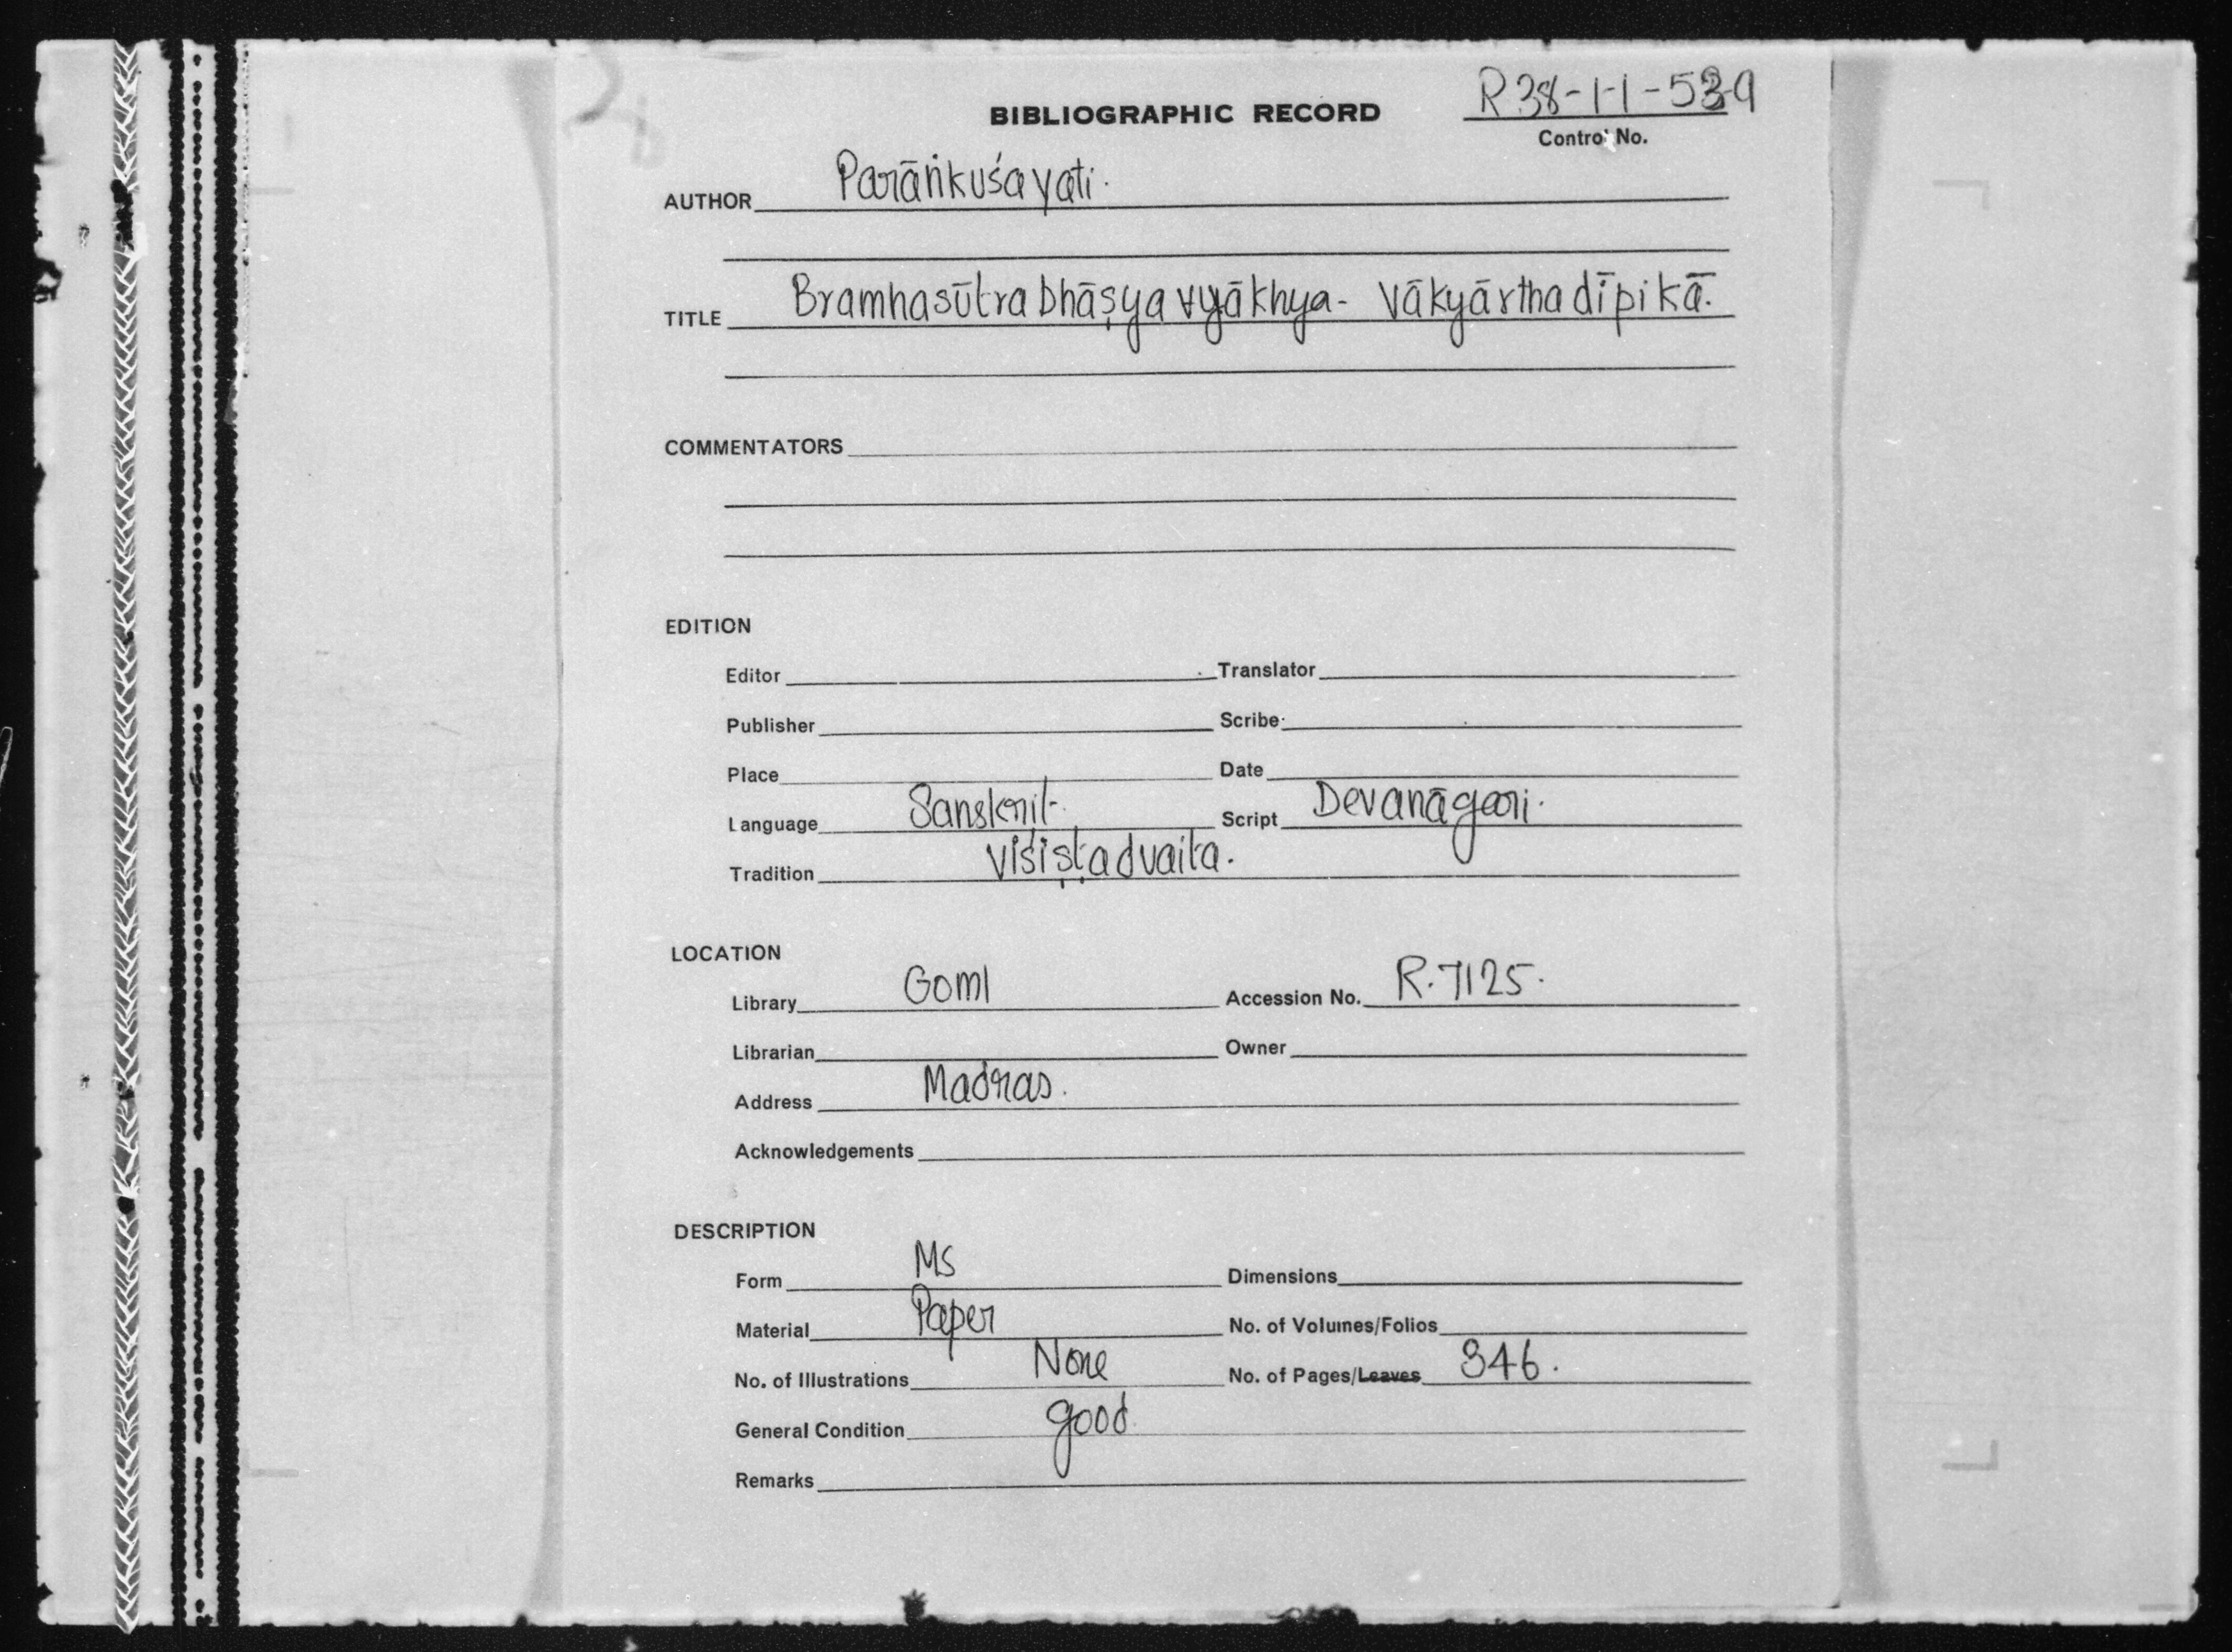 BIBLIOGRAPHIC RECORD
R38-1-1-539
Control No.
AUTHOR Parāṅkuśayati.
TITLE Bramhasūtrabhāṣyavyākhya- Vākyārthadīpikā.
COMMENTATORS
EDITION
Editor Translator
Publisher Scribe
Place Date
Language Sanskrit Script Devanāgari.
Tradition Viśiṣṭadvaita.
LOCATION
Library Goml Accession No. R.7125.
Librarian Owner
Address Madras.
Acknowledgements
DESCRIPTION
Form Ms Dimensions
Material Paper No. of Volumes/Folios
No. of Illustrations None No. of Pages/Leaves 346.
General Condition good
Remarks